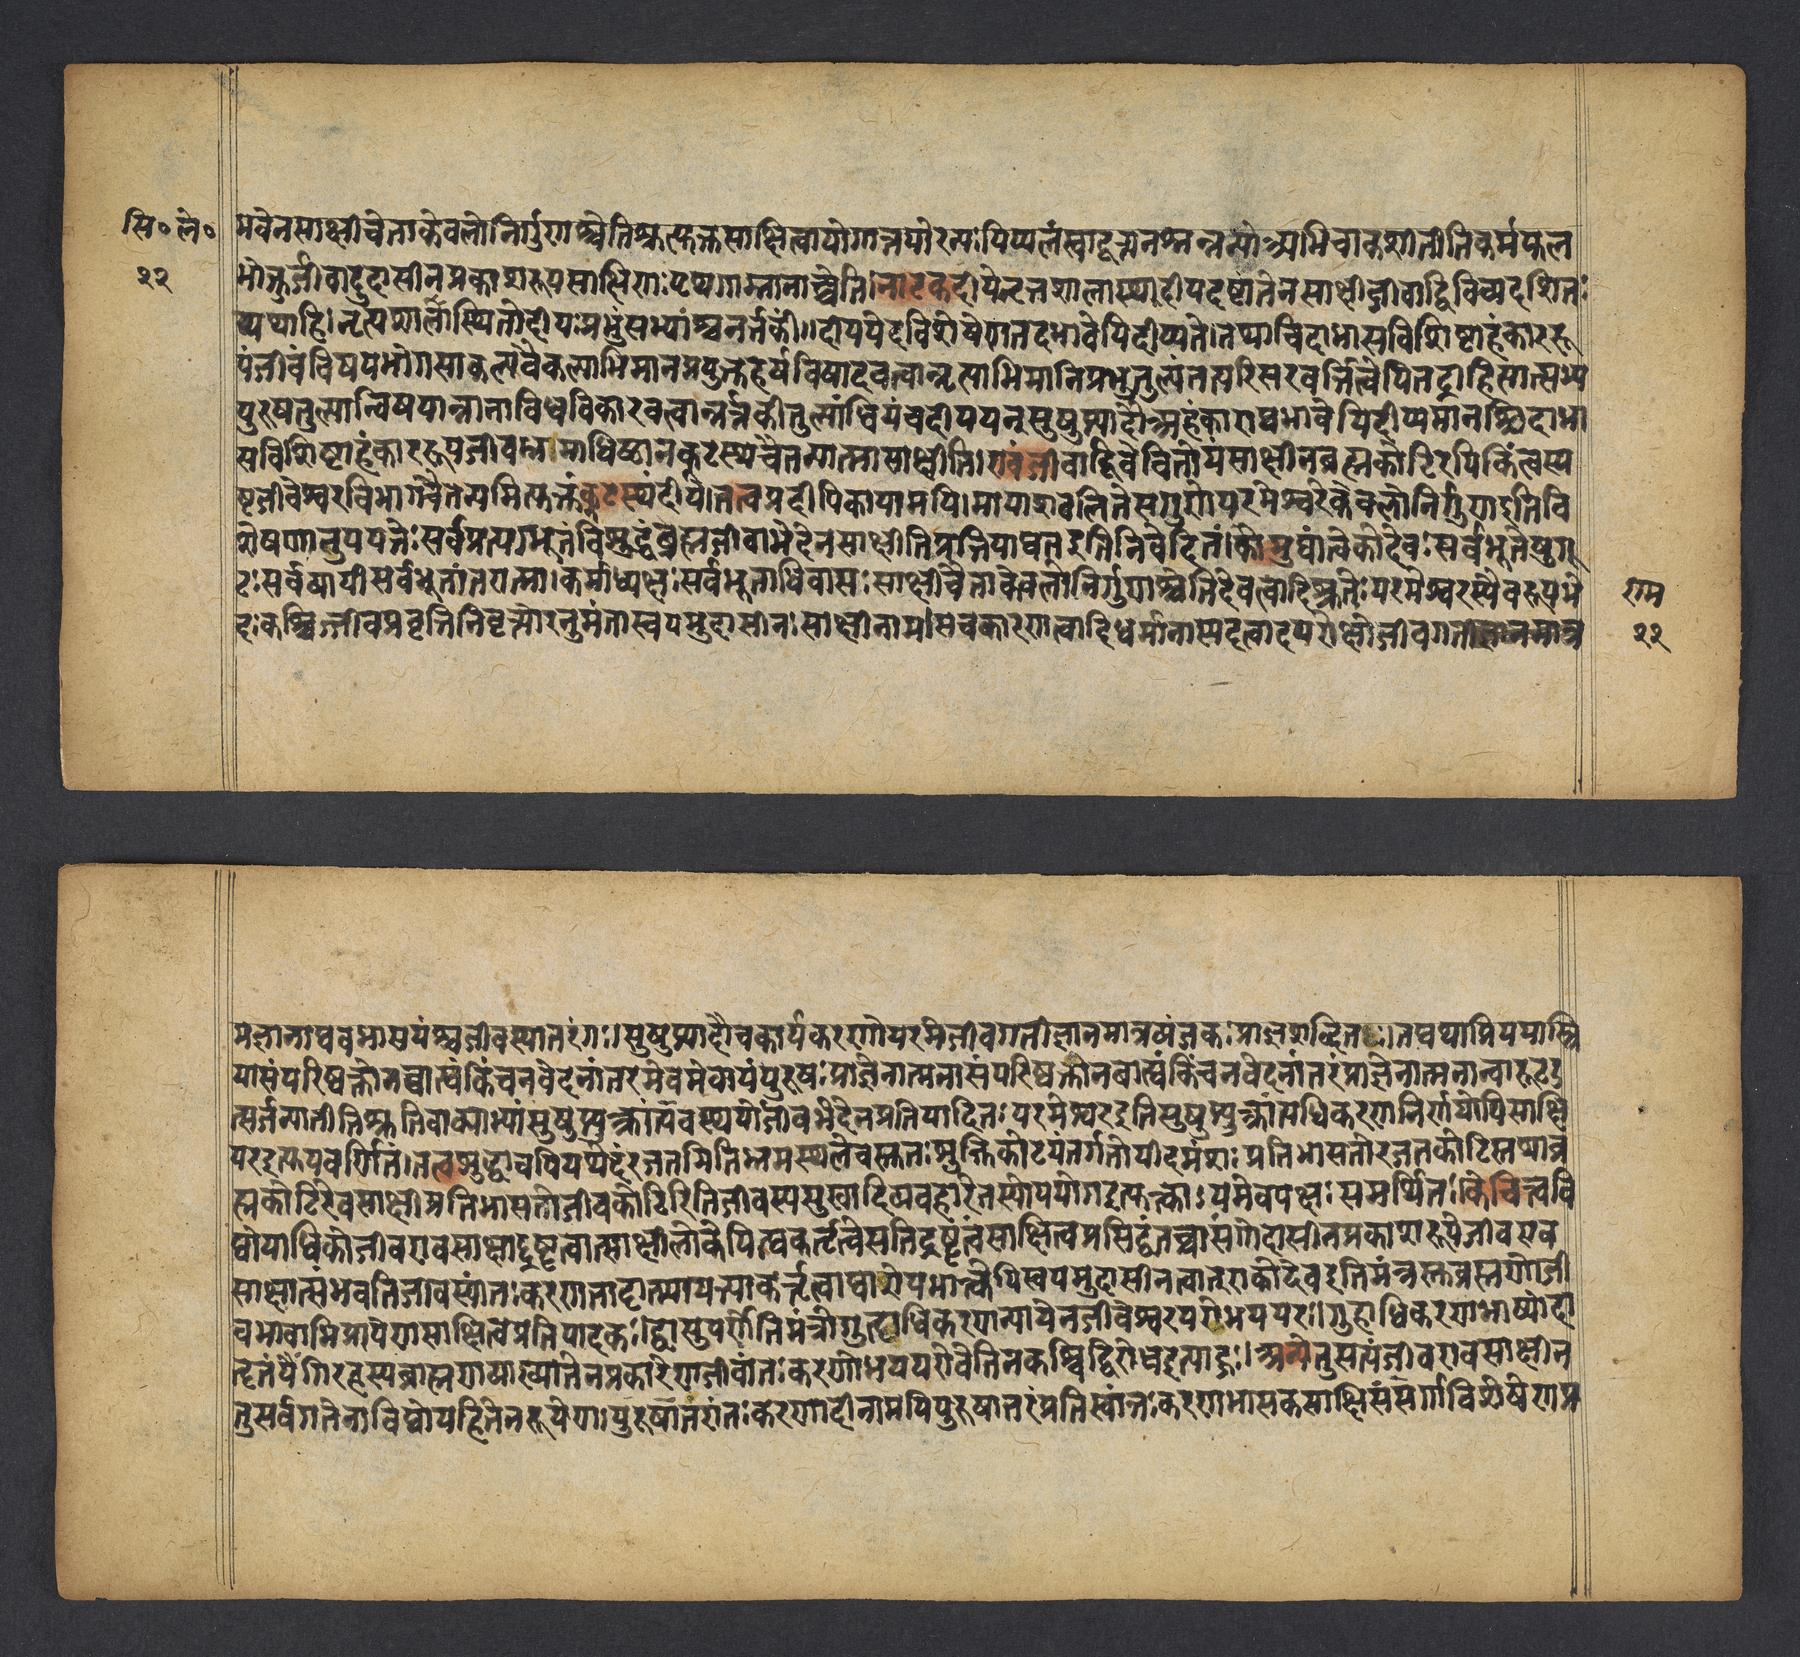 सि॰ ले॰
२२
मवेनसाक्षीचेताकेवलोनिर्गुणश्चेतिश्रुत्युक्तसाक्षित्वायोगात्तयोरन्यःपिप्पलंस्वाद्वत्त्यनश्नन्नन्योअभिचाकशीतीतिकर्मफल
भोक्तुर्जीवादुदासीनप्रकाशरूपसाक्षिणःपृथगाम्नानाच्चेति।नाटकदीपेनृत्तशालास्थदीपदृष्टांतेनसाक्षीजीवाद्विविच्यदर्शितः
तथाहि।नृत्यशालास्थितोदीपःप्रभुंसभ्यांश्चनर्तकीं॥दीपयेदविशेषेणतदभावेपिदीप्यते।तथाचिदाभासविशिष्टाहंकाररू
पंजीवंविषयभोगसाकल्यवैकल्याभिमानप्रयुक्तहर्षविषादवत्वान्नृत्याभिमानिप्रभुतुल्यंतत्परिसरवर्तित्वेपितद्राहित्यात्सभ्य
पुरुषतुल्यान्विषयान्नानाविधविकारवत्वान्नर्तकीतुल्यांधियंचदीपयन्सुषुप्त्यादौअहंकाराद्यभावेपिदीप्यमानश्चिदाभा
सविशिष्टाहंकाररूपजीवभ्रमाधिष्ठानकूटस्थचैतन्यात्मासाक्षीति।एवंजीवाद्विवेचितोयंसाक्षीनब्रह्मकोटिरपिकिंत्वस्प
ष्टजीवेश्वरविभागंचैतन्यमित्युक्तंकूटस्थदीपे।तत्वप्रदीपिकायामपि।मायाशबलितेसगुणेपरमेश्वरेकेवलोनिर्गुणइतिवि
शेषणानुपपत्तेःसर्वप्रत्यग्भूतंविशुद्धंब्रह्मजीवाभेदेनसाक्षीतिप्रतिपाद्यतइतिनिवेदितं।कौमुद्यांत्वेकोदेवःसर्वभूतेषुगू
ढःसर्वव्यापीसर्वभूतांतरात्मा।कर्माध्यक्षःसर्वभूताधिवासःसाक्षीचेताकेवलोनिर्गुणश्चेतिदेवत्वादिश्रुतेःपरमेश्वरस्यैवरूपभे
दःकश्चिज्जीवप्रवृत्तिनिवृत्त्योरनुमंतास्वयमुदासीनःसाक्षीनाम।सचकारणत्वादिधर्मानास्पदत्वादपरोक्षोजीवगतोज्ञानमात्र
राम
२२
मज्ञानाद्यवभासयंश्चजीवस्यातरंगः।सुषुप्त्यादौचकार्यकरणोपरमेजीवगतोज्ञानमात्रव्यंजकःप्राज्ञशब्दितः।तद्यथाप्रिययास्त्रि
यासंपरिष्वक्तोनबाह्यंकिंचनवेदनांतरमेवमेवायंपुरुषःप्राज्ञेनात्मनासंपरिष्वक्तोनबाह्यंकिंचनवेदनांतरंप्राज्ञेनात्मनान्वारूढउ
त्सर्जन्यातीतिश्रुतिवाक्याभ्यांसुषुप्त्युत्क्रांत्यवस्थयोर्जीवभेदेनप्रतिपादितःपरमेश्वरइतिसुषुप्त्युत्क्रांत्यधिकरणनिर्णयोपिसाक्षि
परइत्युपवर्णितं।तत्वशुद्धावपियथेदंरजतमितिभ्रमस्थलेवस्तुतःशुक्तिकोट्यंतर्गतोपीदमंशःप्रतिभासतोरजतकोटिस्तथाब्र
ह्मकोटिरेवसाक्षीप्रतिभासतोजीवकोटिरितिजीवस्यसुखादिव्यवहारेतस्योपयोगइत्युक्त्वा।यमेवपक्षःसमर्थितः।केचित्त्ववि
द्योपाधिकोजीवएवसाक्षाद्द्रष्टृत्वात्साक्षीलोकेपिह्यकर्तृत्वेसतिद्रष्टृत्वंसाक्षित्वंप्रसिद्धंतच्चासंगोदासीनप्रकाशरूपेजीवएव
साक्षात्संभवतिजीवस्यांतःकरणतादात्म्यापत्त्याकर्तृत्वाद्यारोपभाक्त्वेपिस्वयमुदासीनत्वात्एकोदेवइतिमंत्रस्तुब्रह्मणोजी
वभावाभिप्रायेणसाक्षित्वप्रतिपादकः।द्वासुपर्णेतिमंत्रोगुहाधिकरणन्यायेनजीवेश्वरपरोभयपरः।गुहाधिकरणभाष्योदा
हृतंपैंगिरहस्यब्राह्मणव्याख्यातेनप्रकारेणजीवांतःकरणोभयपरोवेतिनकश्चिद्विरोधइत्याहुः।अन्येतुसत्यंजीवएवसाक्षीन
तुसर्वगतेनाविद्योपहितेनरूपेण।पुरुषांतरांतःकरणादीनामपिपुरुषांतरंप्रतिस्वांतःकरणभासकसाक्षिसंसर्गाविशेषेणप्र